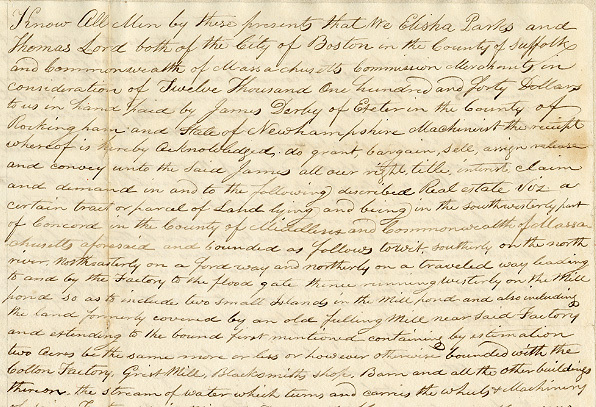 Know All Men by these presents that We Elisha Parks and
Thomas Lord both of the City of Boston in the County of Suffolk
and Commonwealth of Massachusetts Commission Merchants in
consideration of Twelve Thousand One hundred and forty Dollars
to us in hand paid by James Derby of Exeter in the County of
Rockingham and State of Newhampshire Machinist the receipt
whereof is hereby Acknowledged, do grant, bargain, sell, assign release
and convey unto the said James all our right, title, interest, claim
and demand in and to the following described Real estate Viz a
certain tract or parcel of Land lying and being in the Southwesterly part
of Concord in the County of Middlesex and Commonwealth of Massa
chusetts aforesaid and bounded as follows to wit Southerly on the north
river, Northeasterly on a ford way and northerly on a traveled way leading
to and by the Factory to the flood gate thence running westerly on the Mill
pond so as to include two small Islands in the Mill pond and also including
the land formerly covered by an old fulling Mill near said Factory
and extending to the bound first mentioned containing by estimation
two Acres be the same more or less or however otherwise bounded with the
Cotton Factory, Grist Mill, Blacksmiths shop, Barn and all the other buildings
thereon, the stream of water which turns and carries the wheels & Machinery